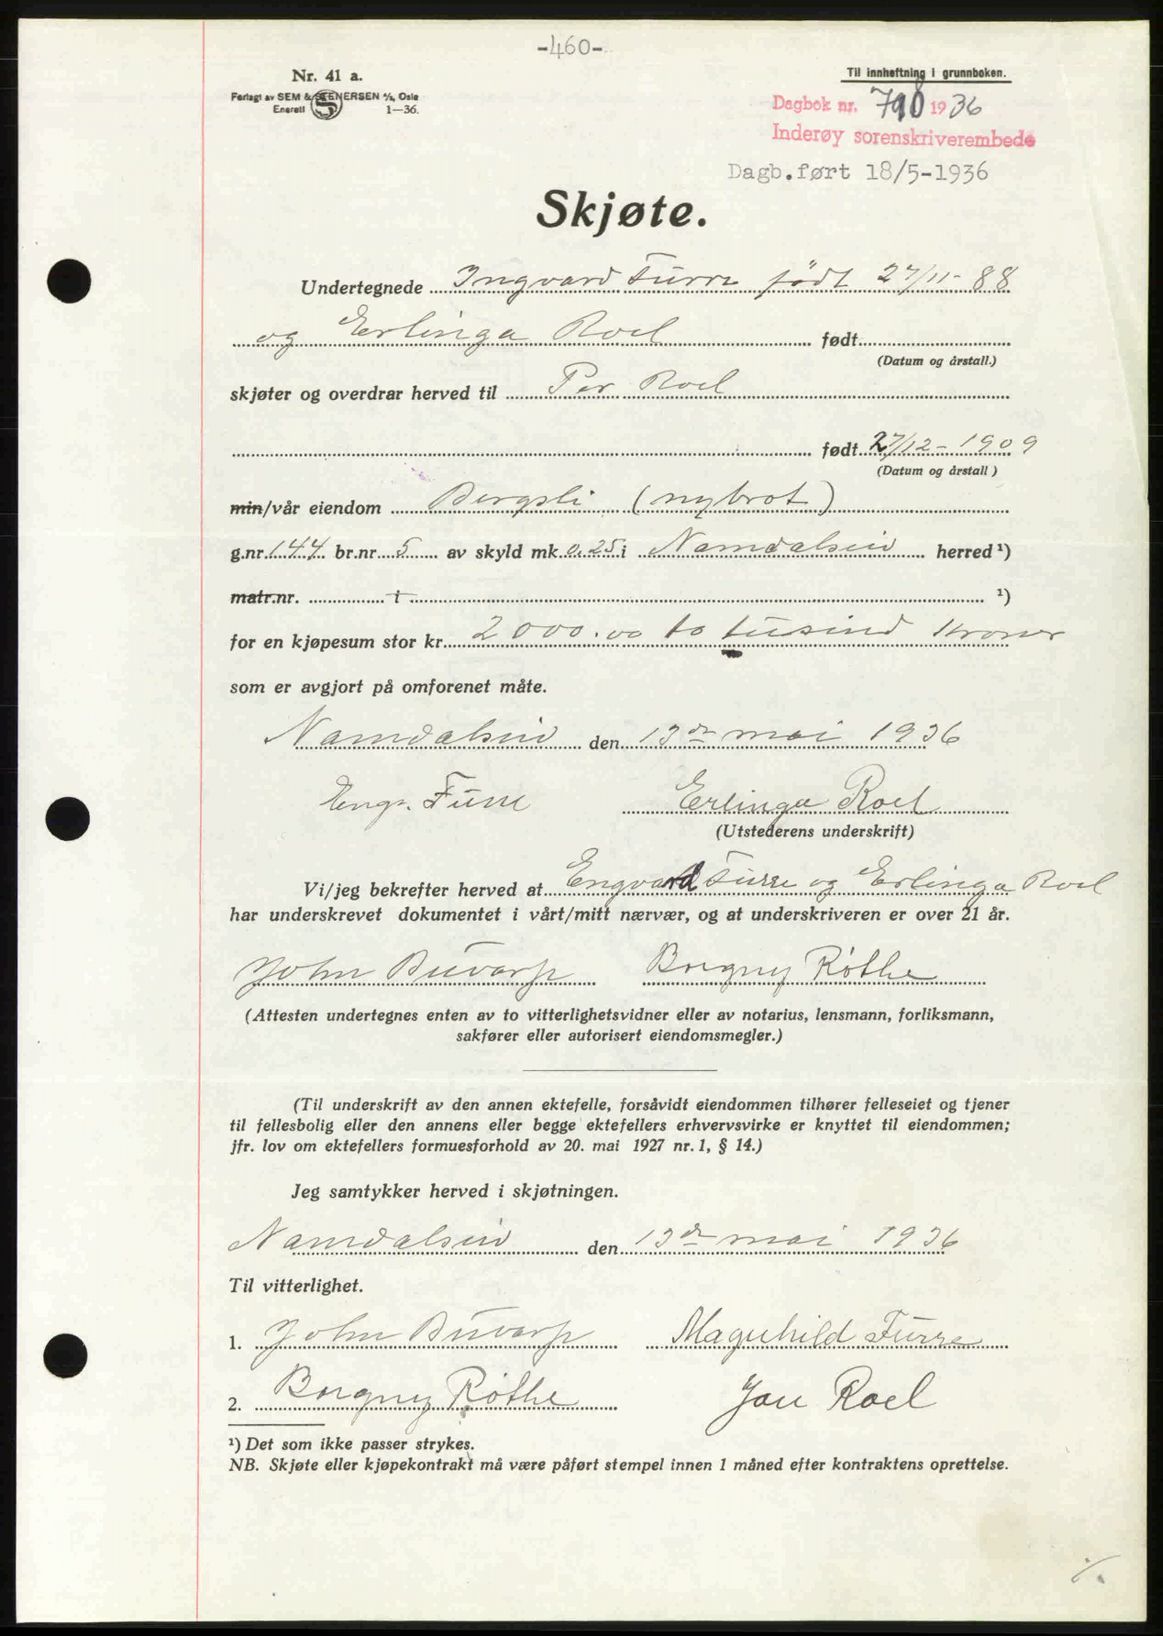 -460-
Nr. 41 a.
Forlagt av SEM & STENERSEN A/S, Oslo
Enerett 1—36.
Til innheftning i grunnboken.
Dagbok nr. 790 1936
Inderøy sorenskriverembede
Dagb.ført 18/5-1936
Skjøte.
Undertegnede Ingvard Furre født 27/11-88
og Erlinga Roel født
(Datum og årstall.)
skjøter og overdrar herved til Per Roel
født 27/12-1909
(Datum og årstall)
min/vår eiendom Bergsli (nybrot)
g.nr. 144 br.nr. 5 av skyld mk. 0.25 i Namdalseid herred ¹)
matr.nr. i ¹)
for en kjøpesum stor kr. 2000.00 to tusind kroner
som er avgjort på omforenet måte.
Namdalseid den 13de mai 1936
Engv. Furre Erlinga Roel
(Utstederens underskrift)
Vi/jeg bekrefter herved at Engvard Furre og Erlinga Roel
har underskrevet dokumentet i vårt/mitt nærvær, og at underskriveren er over 21 år.
John Buvarp Borgny Røthe
(Attesten undertegnes enten av to vitterlighetsvidner eller av notarius, lensmann, forliksmann,
sakfører eller autorisert eiendomsmegler.)
(Til underskrift av den annen ektefelle, forsåvidt eiendommen tilhører felleseiet og tjener
til fellesbolig eller den annens eller begge ektefellers erhvervsvirke er knyttet til eiendommen;
jfr. lov om ektefellers formuesforhold av 20. mai 1927 nr. 1, § 14.)
Jeg samtykker herved i skjøtningen.
Namdalseid den 13de mai 1936
Til vitterlighet.
1. John Buvarp Maguhild Furre
2. Borgny Røthe Jon Roel
¹) Det som ikke passer strykes.
NB. Skjøte eller kjøpekontrakt må være påført stempel innen 1 måned efter kontraktens oprettelse.